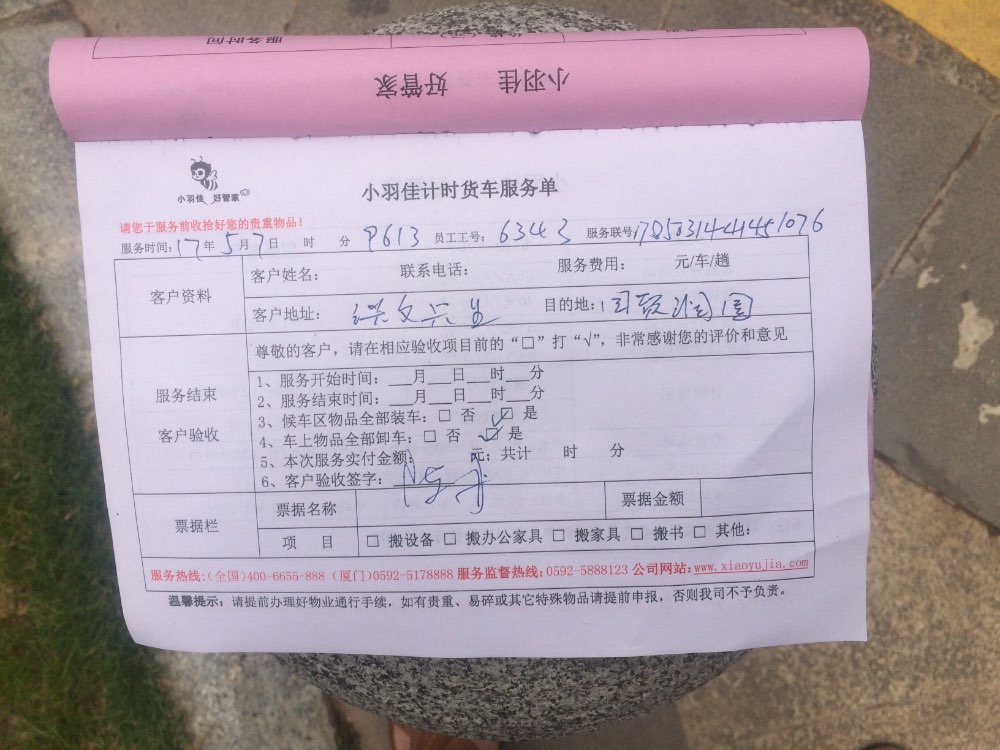 服务时间
小羽佳 好管家
小羽佳 好管家
小羽佳计时货车服务单
请您于服务前收拾好您的贵重物品!
服务时间:17年5月7日 时 分 P613 员工工号: 6343 服务联号:
客户资料
客户姓名: 联系电话: 服务费用: 元/车/趟
客户地址: 目的地:
尊敬的客户,请在相应验收项目前的“□”打“√”,非常感谢您的评价和意见
服务结束
客户验收
1、服务开始时间:___月___日___时___分
2、服务结束时间:___月___日___时___分
3、候车区物品全部装车:□ 否 ☑ 是
4、车上物品全部卸车:□ 否 ☑ 是
5、本次服务实付金额: 元;共计 时 分
6、客户验收签字:
票据栏
票据名称 票据金额
项 目 □ 搬设备 □ 搬办公家具 □ 搬家具 □ 搬书 □ 其他:
服务热线:(全国)400-6655-888 (厦门)0592-5178888 服务监督热线:0592-5888123 公司网站:www.xiaoyujia.com
温馨提示:请提前办理好物业通行手续,如有贵重、易碎或其它特殊物品请提前申报,否则我司不予负责。